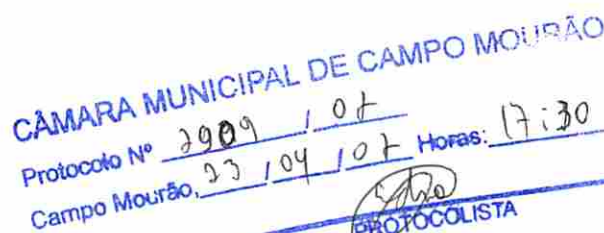 CÂMARA MUNICIPAL DE CAMPO MOURÃO
Protocolo Nº 2909 / 07
Campo Mourão, 23 / 04 / 07 Horas: 17:30
PROTOCOLISTA